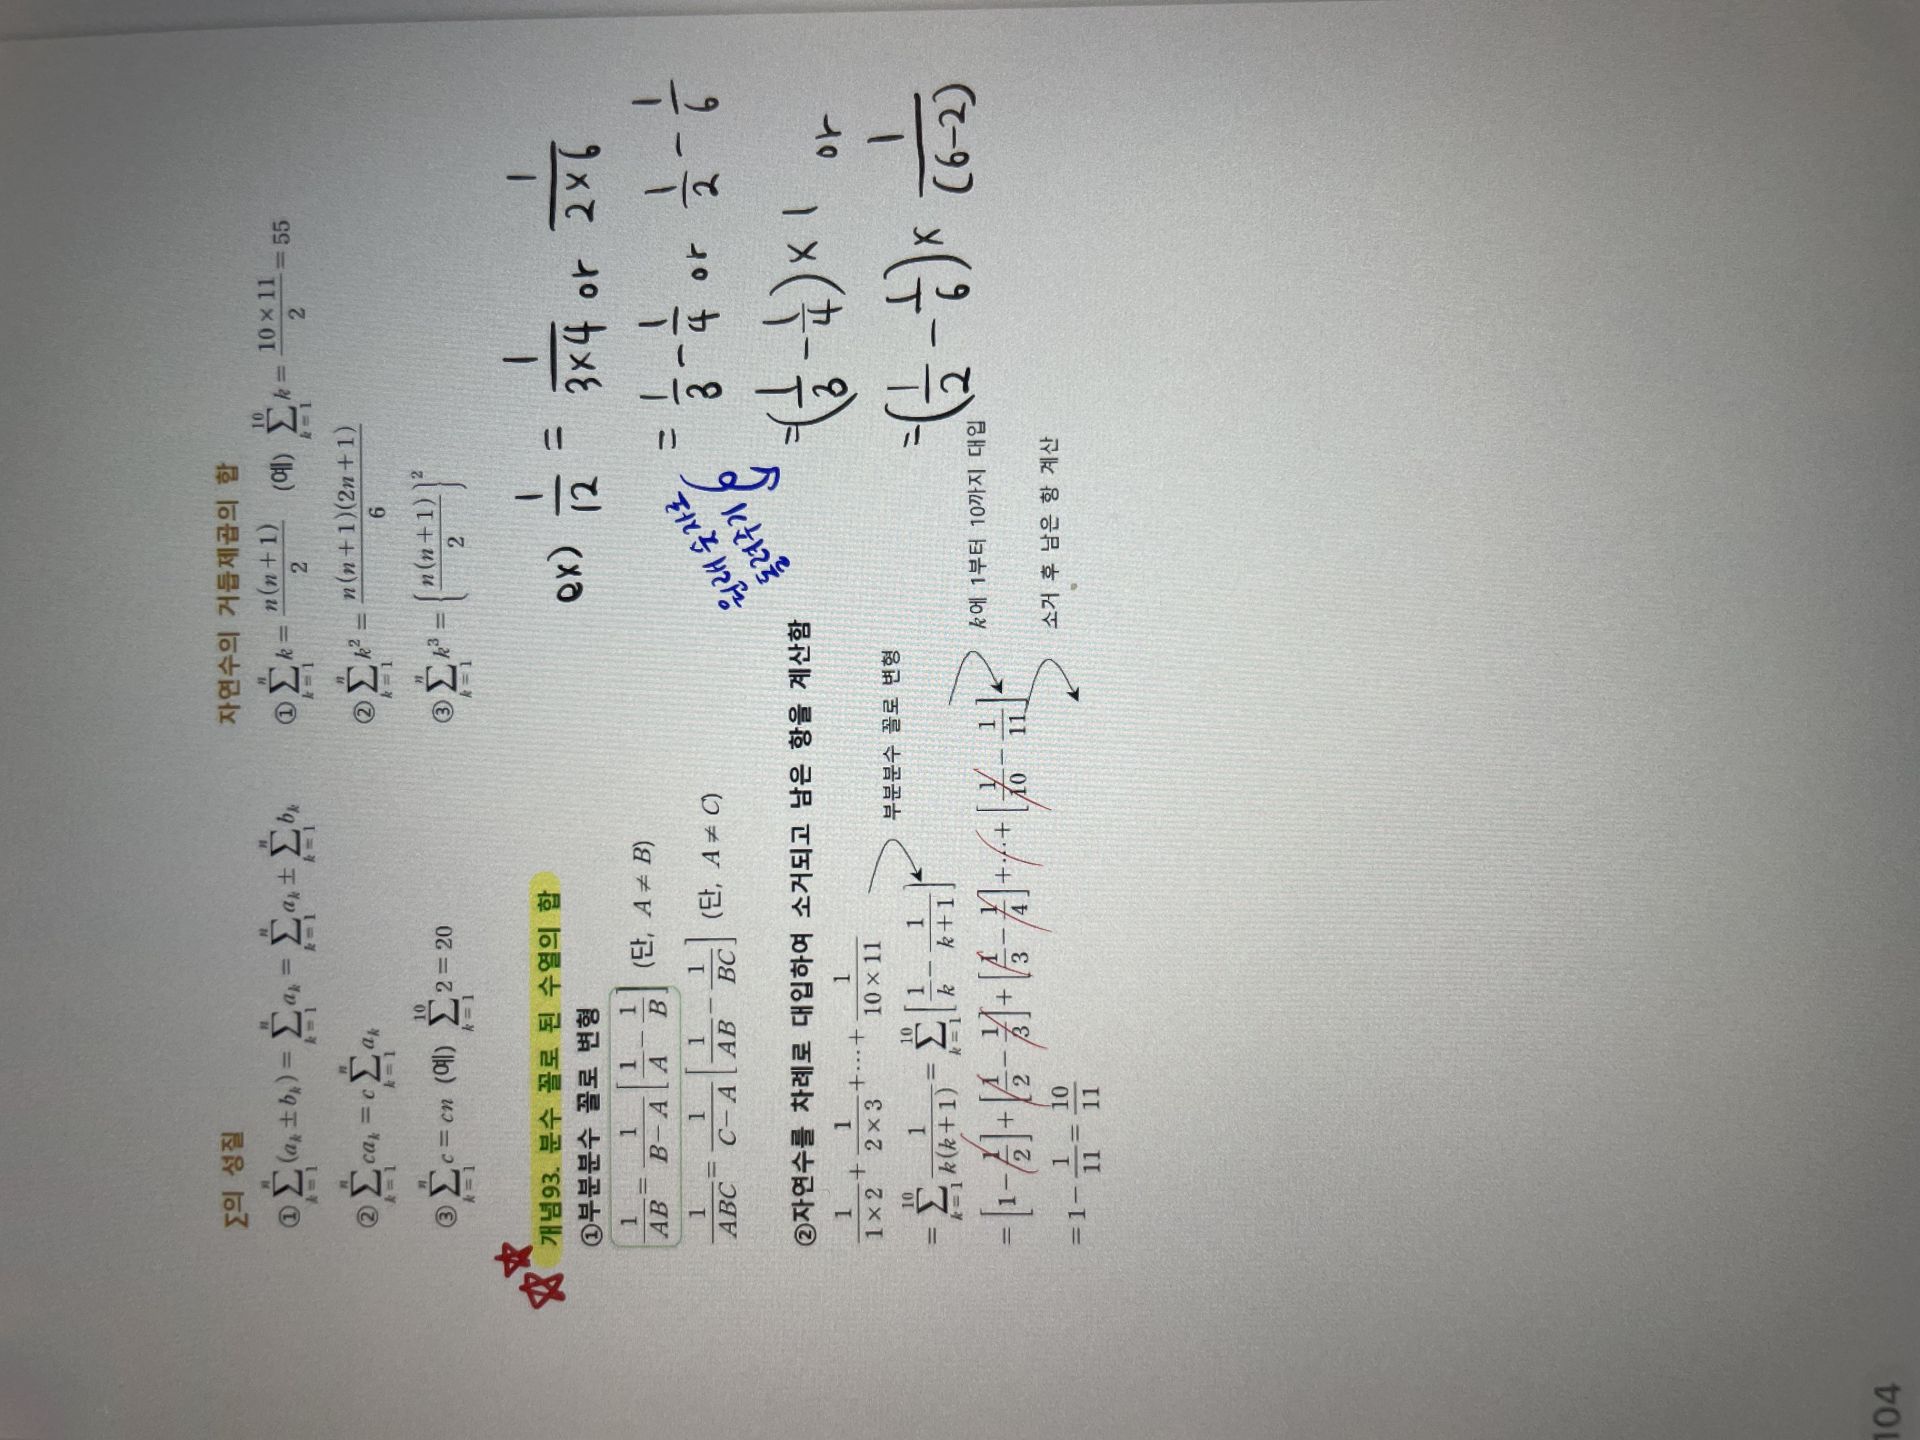 Σ의 성질
① \sum_{k=1}^{n}(a_k ± b_k) = \sum_{k=1}^{n}a_k = \sum_{k=1}^{n}a_k ± \sum_{k=1}^{n}b_k
② \sum_{k=1}^{n}ca_k = c\sum_{k=1}^{n}a_k
③ \sum_{k=1}^{n}c = cn (예) \sum_{k=1}^{10}2 = 20
자연수의 거듭제곱의 합
① \sum_{k=1}^{n}k = \frac{n(n+1)}{2} (예) \sum_{k=1}^{10}k = \frac{10×11}{2} = 55
② \sum_{k=1}^{n}k^2 = \frac{n(n+1)(2n+1)}{6}
③ \sum_{k=1}^{n}k^3 = \left\{\frac{n(n+1)}{2}\right\}^2
개념93. 분수 꼴로 된 수열의 합
①부분분수 꼴로 변형
\frac{1}{AB} = \frac{1}{B-A}\left[\frac{1}{A} - \frac{1}{B}\right] (단, A ≠ B)
\frac{1}{ABC} = \frac{1}{C-A}\left[\frac{1}{AB} - \frac{1}{BC}\right] (단, A ≠ C)
ex) \frac{1}{12} = \frac{1}{3×4} or \frac{1}{2×6}
= \frac{1}{3} - \frac{1}{4} or \frac{1}{2} - \frac{1}{6}
원래 숫자로
돌려주기
= (\frac{1}{3} - \frac{1}{4}) × 1 or
= (\frac{1}{2} - \frac{1}{6}) × \frac{1}{(6-2)}
②자연수를 차례로 대입하여 소거되고 남은 항을 계산함
\frac{1}{1×2} + \frac{1}{2×3} + … + \frac{1}{10×11}
부분분수 꼴로 변형
= \sum_{k=1}^{10}\frac{1}{k(k+1)} = \sum_{k=1}^{10}\left[\frac{1}{k} - \frac{1}{k+1}\right]
k에 1부터 10까지 대입
= \left[1 - \frac{1}{2}\right] + \left[\frac{1}{2} - \frac{1}{3}\right] + \left[\frac{1}{3} - \frac{1}{4}\right] + … + \left[\frac{1}{10} - \frac{1}{11}\right]
소거 후 남은 항 계산
= 1 - \frac{1}{11} = \frac{10}{11}
104